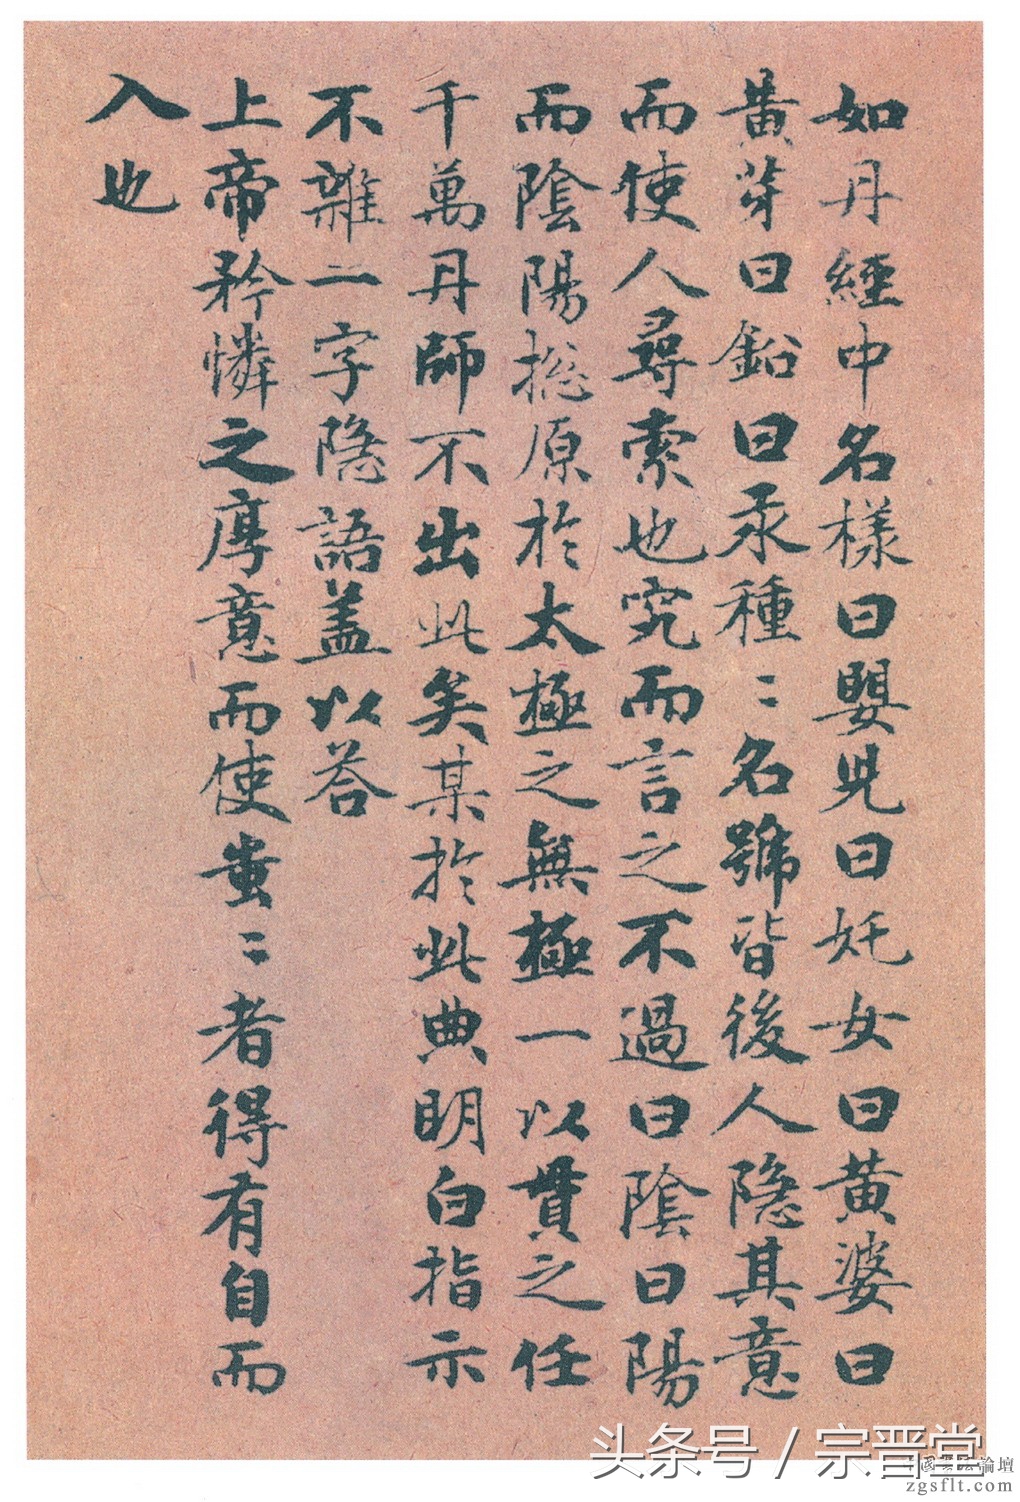 如丹經中名樣曰嬰兒曰奼女曰黃婆曰
黃芽曰鉛曰汞種〻名號皆後人隱其意
而使人尋索也究而言之不過曰陰曰陽
而陰陽捴原於太極之無極一以貫之任
千萬丹師不出此矣某於此典明白指示
不雜一字隱語盖以荅
上帝矜憐之厚意而使蚩〻者得有自而
入也
头条号 / 宗晋堂
zgsflt.com